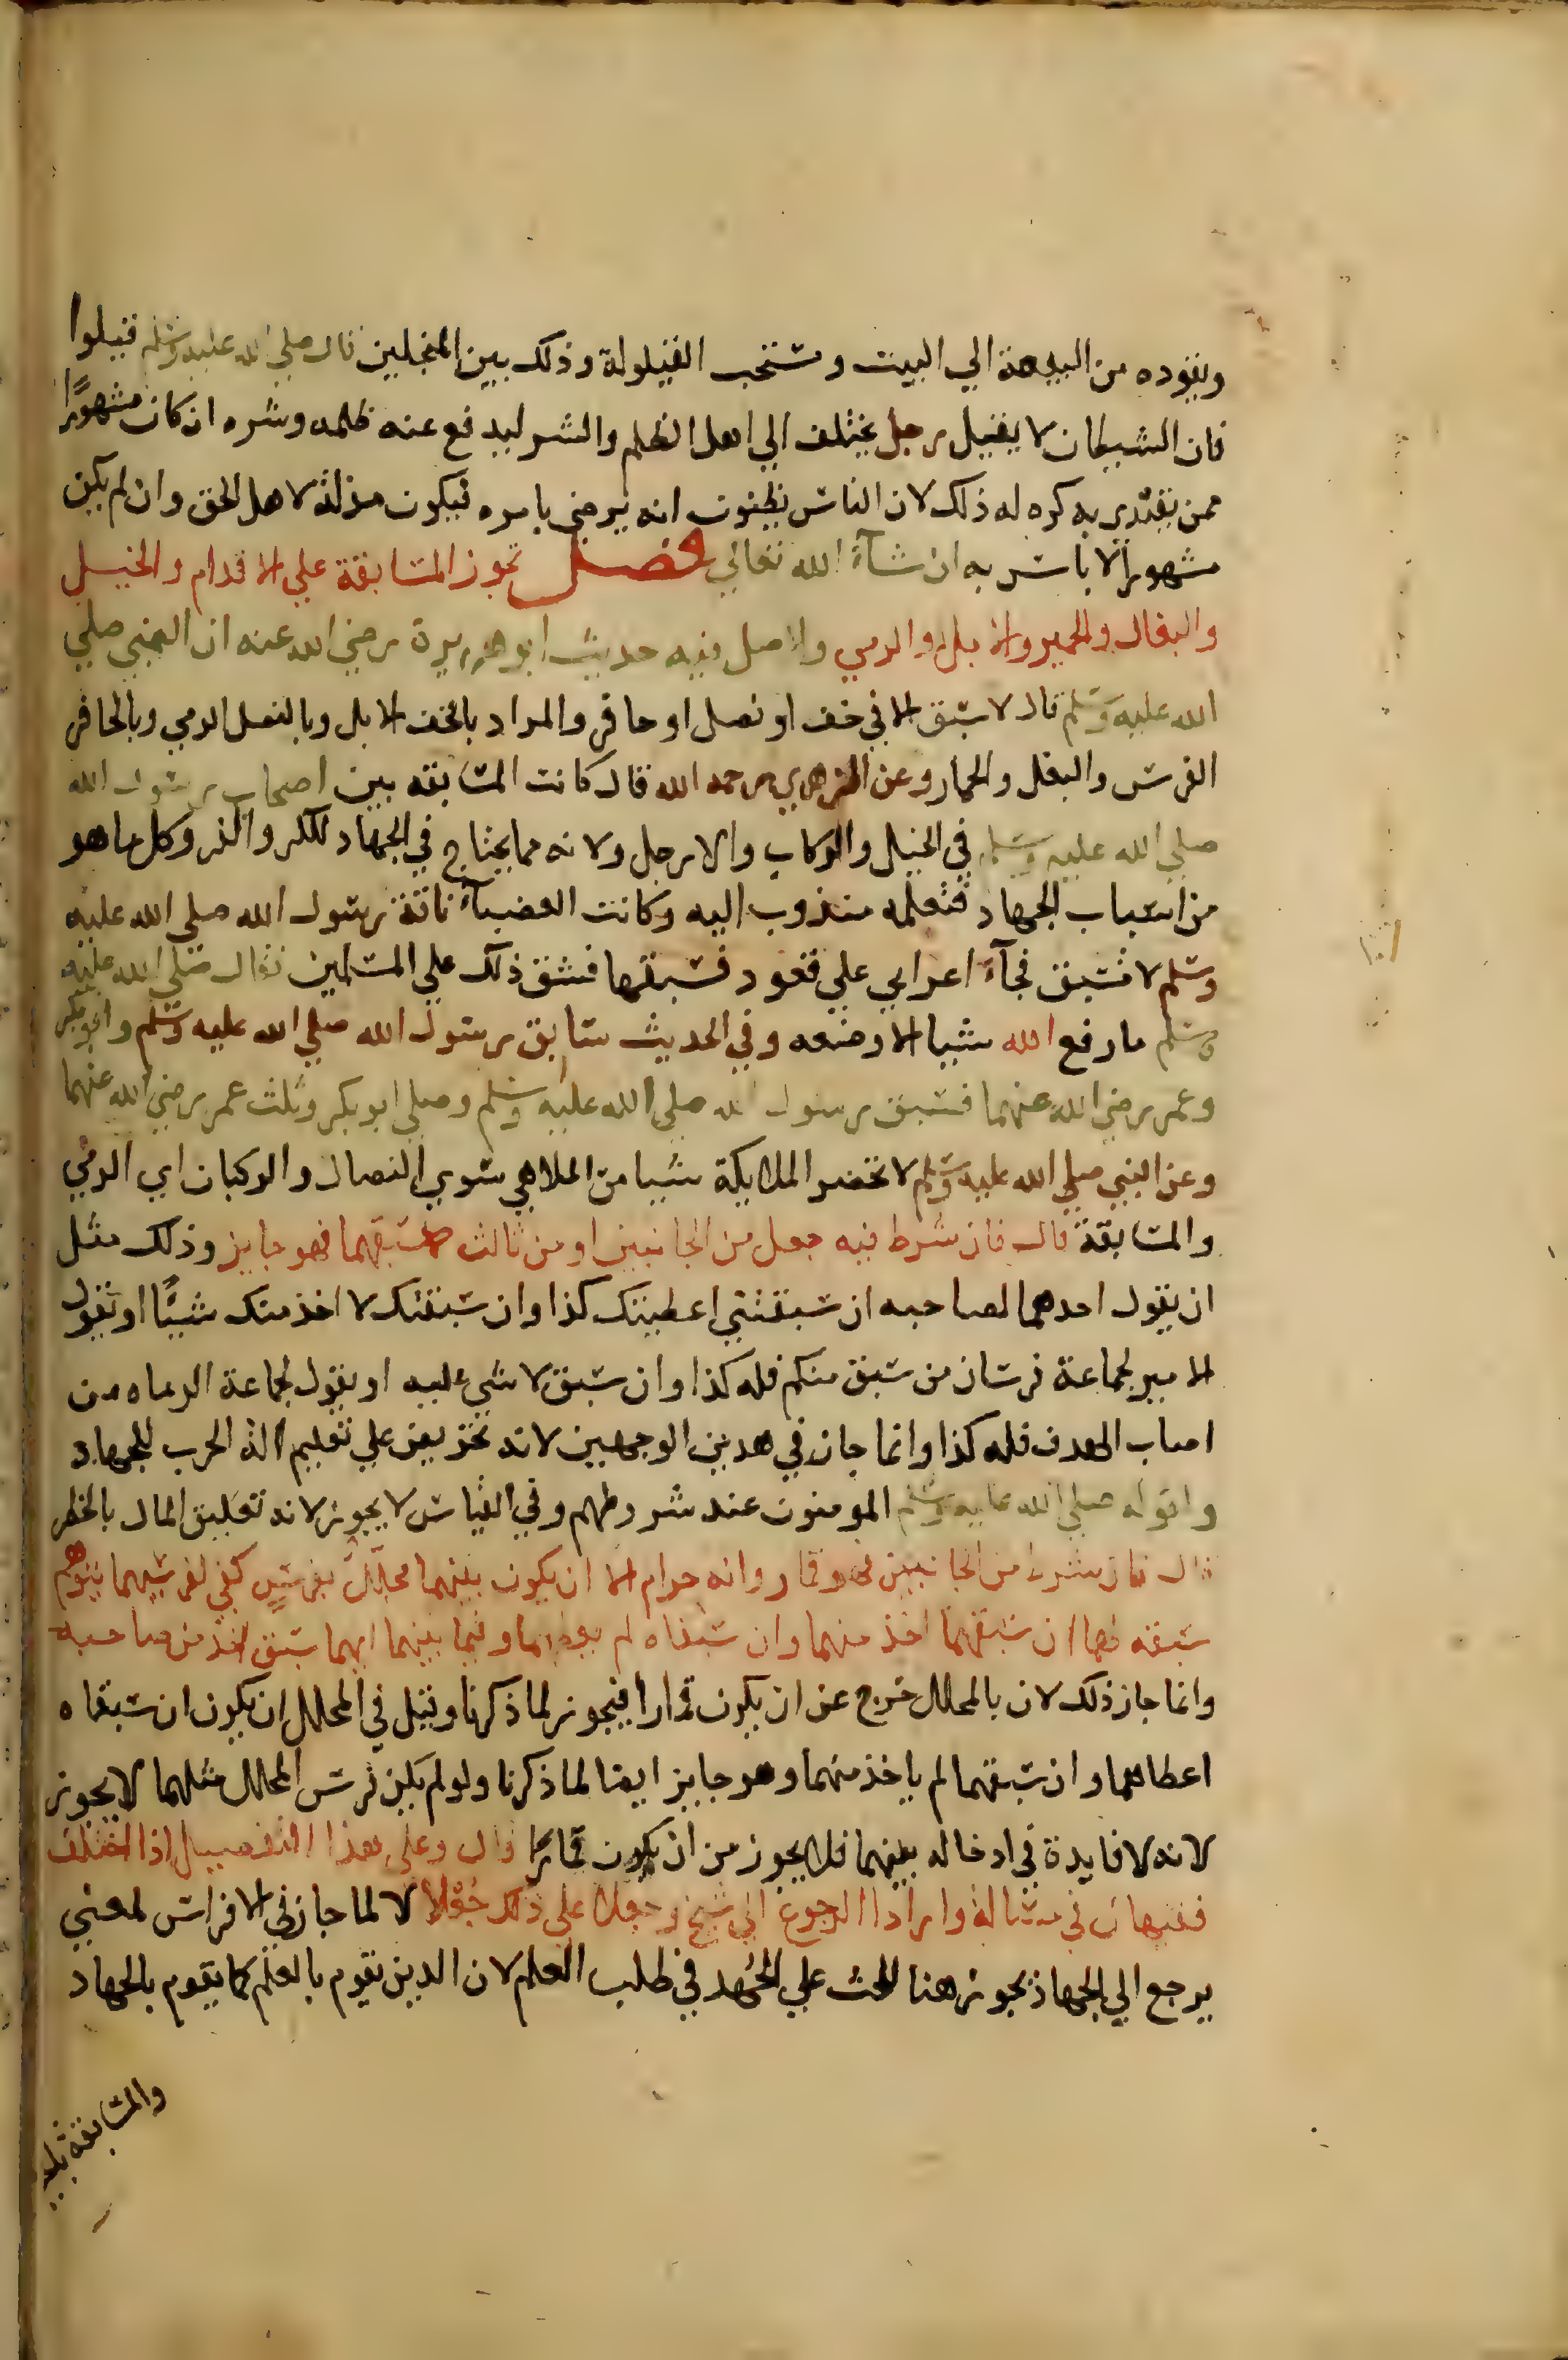 ويقوده من البيعة الي البيت ويستحب القيلولة وذلك بين المنجلين قال صلي الله عليه وسلم قيلوا
فان الشيطان لا يقيل رجل يختلف الي اهل الظلم والشر ليدفع عنه ظلمه وشره ان كان مشهورًا
ممن يقتدي به كره له ذلك لان الناس يظنون انه يرضي بامره فيكون مذلة لاهل الحق وان لم يكن
مشهورًا لا باس به ان شآء الله تعالي فصل تجوز المسابقة علي الاقدام والخيل
والبغال والحمير والابل والرمي والاصل فيه حديث ابو هريرة رضي الله عنه ان النبي صلي
الله عليه وسلم قال لا سبق الا في خف او نصل او حافر والمراد بالخف الابل وبالنصل الرمي وبالحافر
الفرس والبغل والحمار وعن الزهري رحمه الله قال كانت المسابقه بين اصحاب رسول الله
صلي الله عليه وسلم في الخيل والركاب والارجل ولانه مما يحتاج في الجهاد للكر والفر وكل ما هو
من اسباب الجهاد فتعلمه مندوب اليه وكانت العضبآء ناقة رسول الله صلي الله عليه
وسلم لا تسبق فجآء اعرابي علي قعود فسبقها فشق ذلك علي المسلمين فقال صلي الله عليه
وسلم ما رفع الله شيا الا وضعه وفي الحديث سابق رسول الله صلي الله عليه وسلم وابو بكر
وعمر رضي الله عنهما فسبق رسول الله صلي الله عليه وسلم وصلي ابو بكر وثلث عمر رضي الله عنهما
وعن النبي صلي الله عليه وسلم لا تحضر الملايكة شيا من الملاهي سوي النصال والركبان اي الرمي
والمسابقة قال فان شرط فيه جعل من الجانبين او من ثالث لاسبقهما فهو جايز وذلك مثل
ان يقول احدهما لصاحبه ان سبقتني اعطيتك كذا وان سبقتك لا اخذ منك شيئًا او يقول
الامير لجماعة فرسان من سبق منكم فله كذا وان سبق لا شي عليه او يقول لجماعة الرماه من
اصاب الهدف فله كذا وانما جاز في هدين الوجهين لانه تحريض علي تعليم الة الحرب للجهاد
ولقوله صلي الله عليه وسلم المومنون عند شروطهم وفي القياس لا يجوز لانه تعليق المال بالخطر
قال فان شرط من الجانبين فهو قمار وانه حرام الا ان يكون بينهما محلّلٌ بفرسٍ كفي لفرسيهما يتوهم
سبقه لهما ان سبقهما اخذ منهما وان سبقاه لم يعطهما وفيما بينهما ايهما سبق اخذ من صاحبه
وانما جاز ذلك لان بالمحلل خرج عن ان يكون قمارا فيجوز لما ذكرنا وقيل في المحلل ان يكون ان سبقاه
اعطاهما وان سبقهما لم ياخذ منهما وهو جايز ايضا لما ذكرنا ولو لم يكن فرس المحلل مثلهما لا يجوز
لانه لا فايدة في ادخاله بينهما فلا يجوز من ان يكون قمارًا قال وعلي هذا التفصيل اذا اختلف
فقيهان في مسالة وارادا الرجوع الي شيخ وجعلا علي ذلك جُعْلًا لا لما جاز في الافراس لمعني
يرجع الي الجهاد يجوز هنا للحث علي الجُهد في طلب العلم لان الدين يقوم بالعلم كما يقوم بالجهاد
والمسابقة